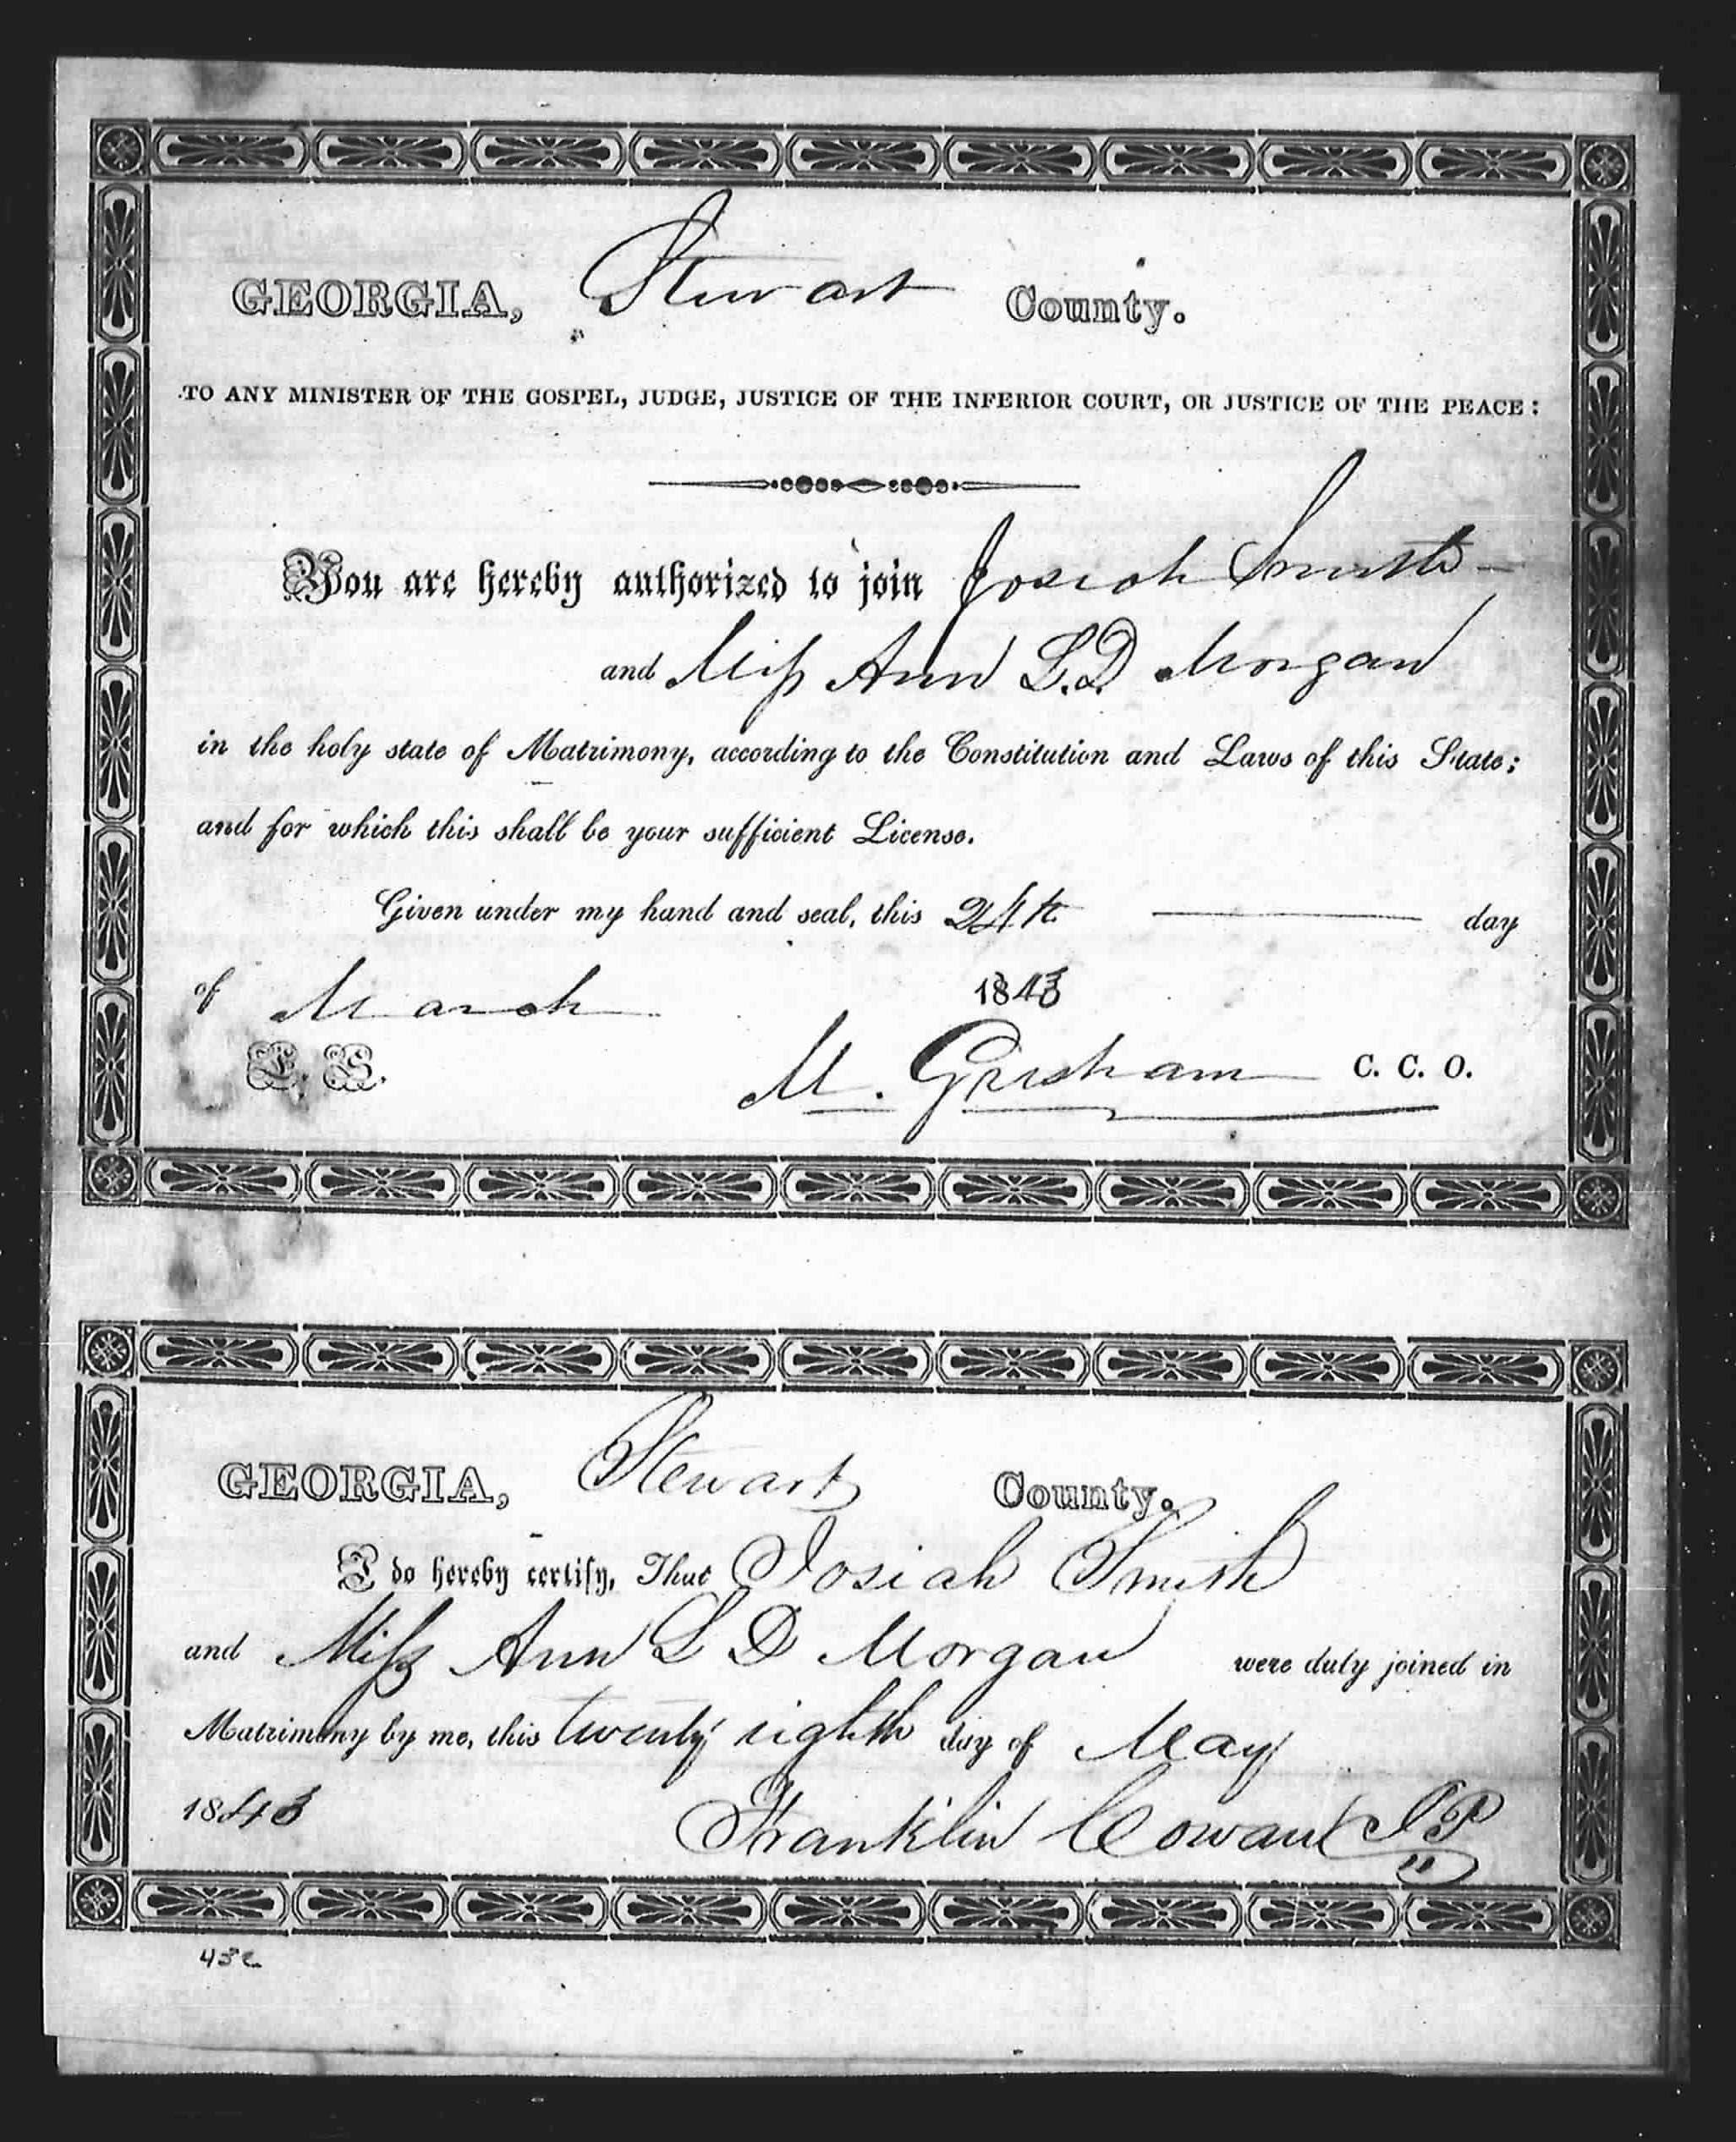 GEORGIA, Stewart County.
TO ANY MINISTER OF THE GOSPEL, JUDGE, JUSTICE OF THE INFERIOR COURT, OR JUSTICE OF THE PEACE:
You are hereby authorized to join Josiah Smith
and Miss Ann L. D. Morgan
in the holy state of Matrimony, according to the Constitution and Laws of this State;
and for which this shall be your sufficient License.
Given under my hand and seal, this 24th day
of March 1843
L. S. M. Grisham C. C. O.
GEORGIA, Stewart County.
I do hereby certify, That Josiah Smith
and Miss Ann L D Morgan were duly joined in
Matrimony by me, this twenty eighth day of May
1843 Franklin Cowan JP